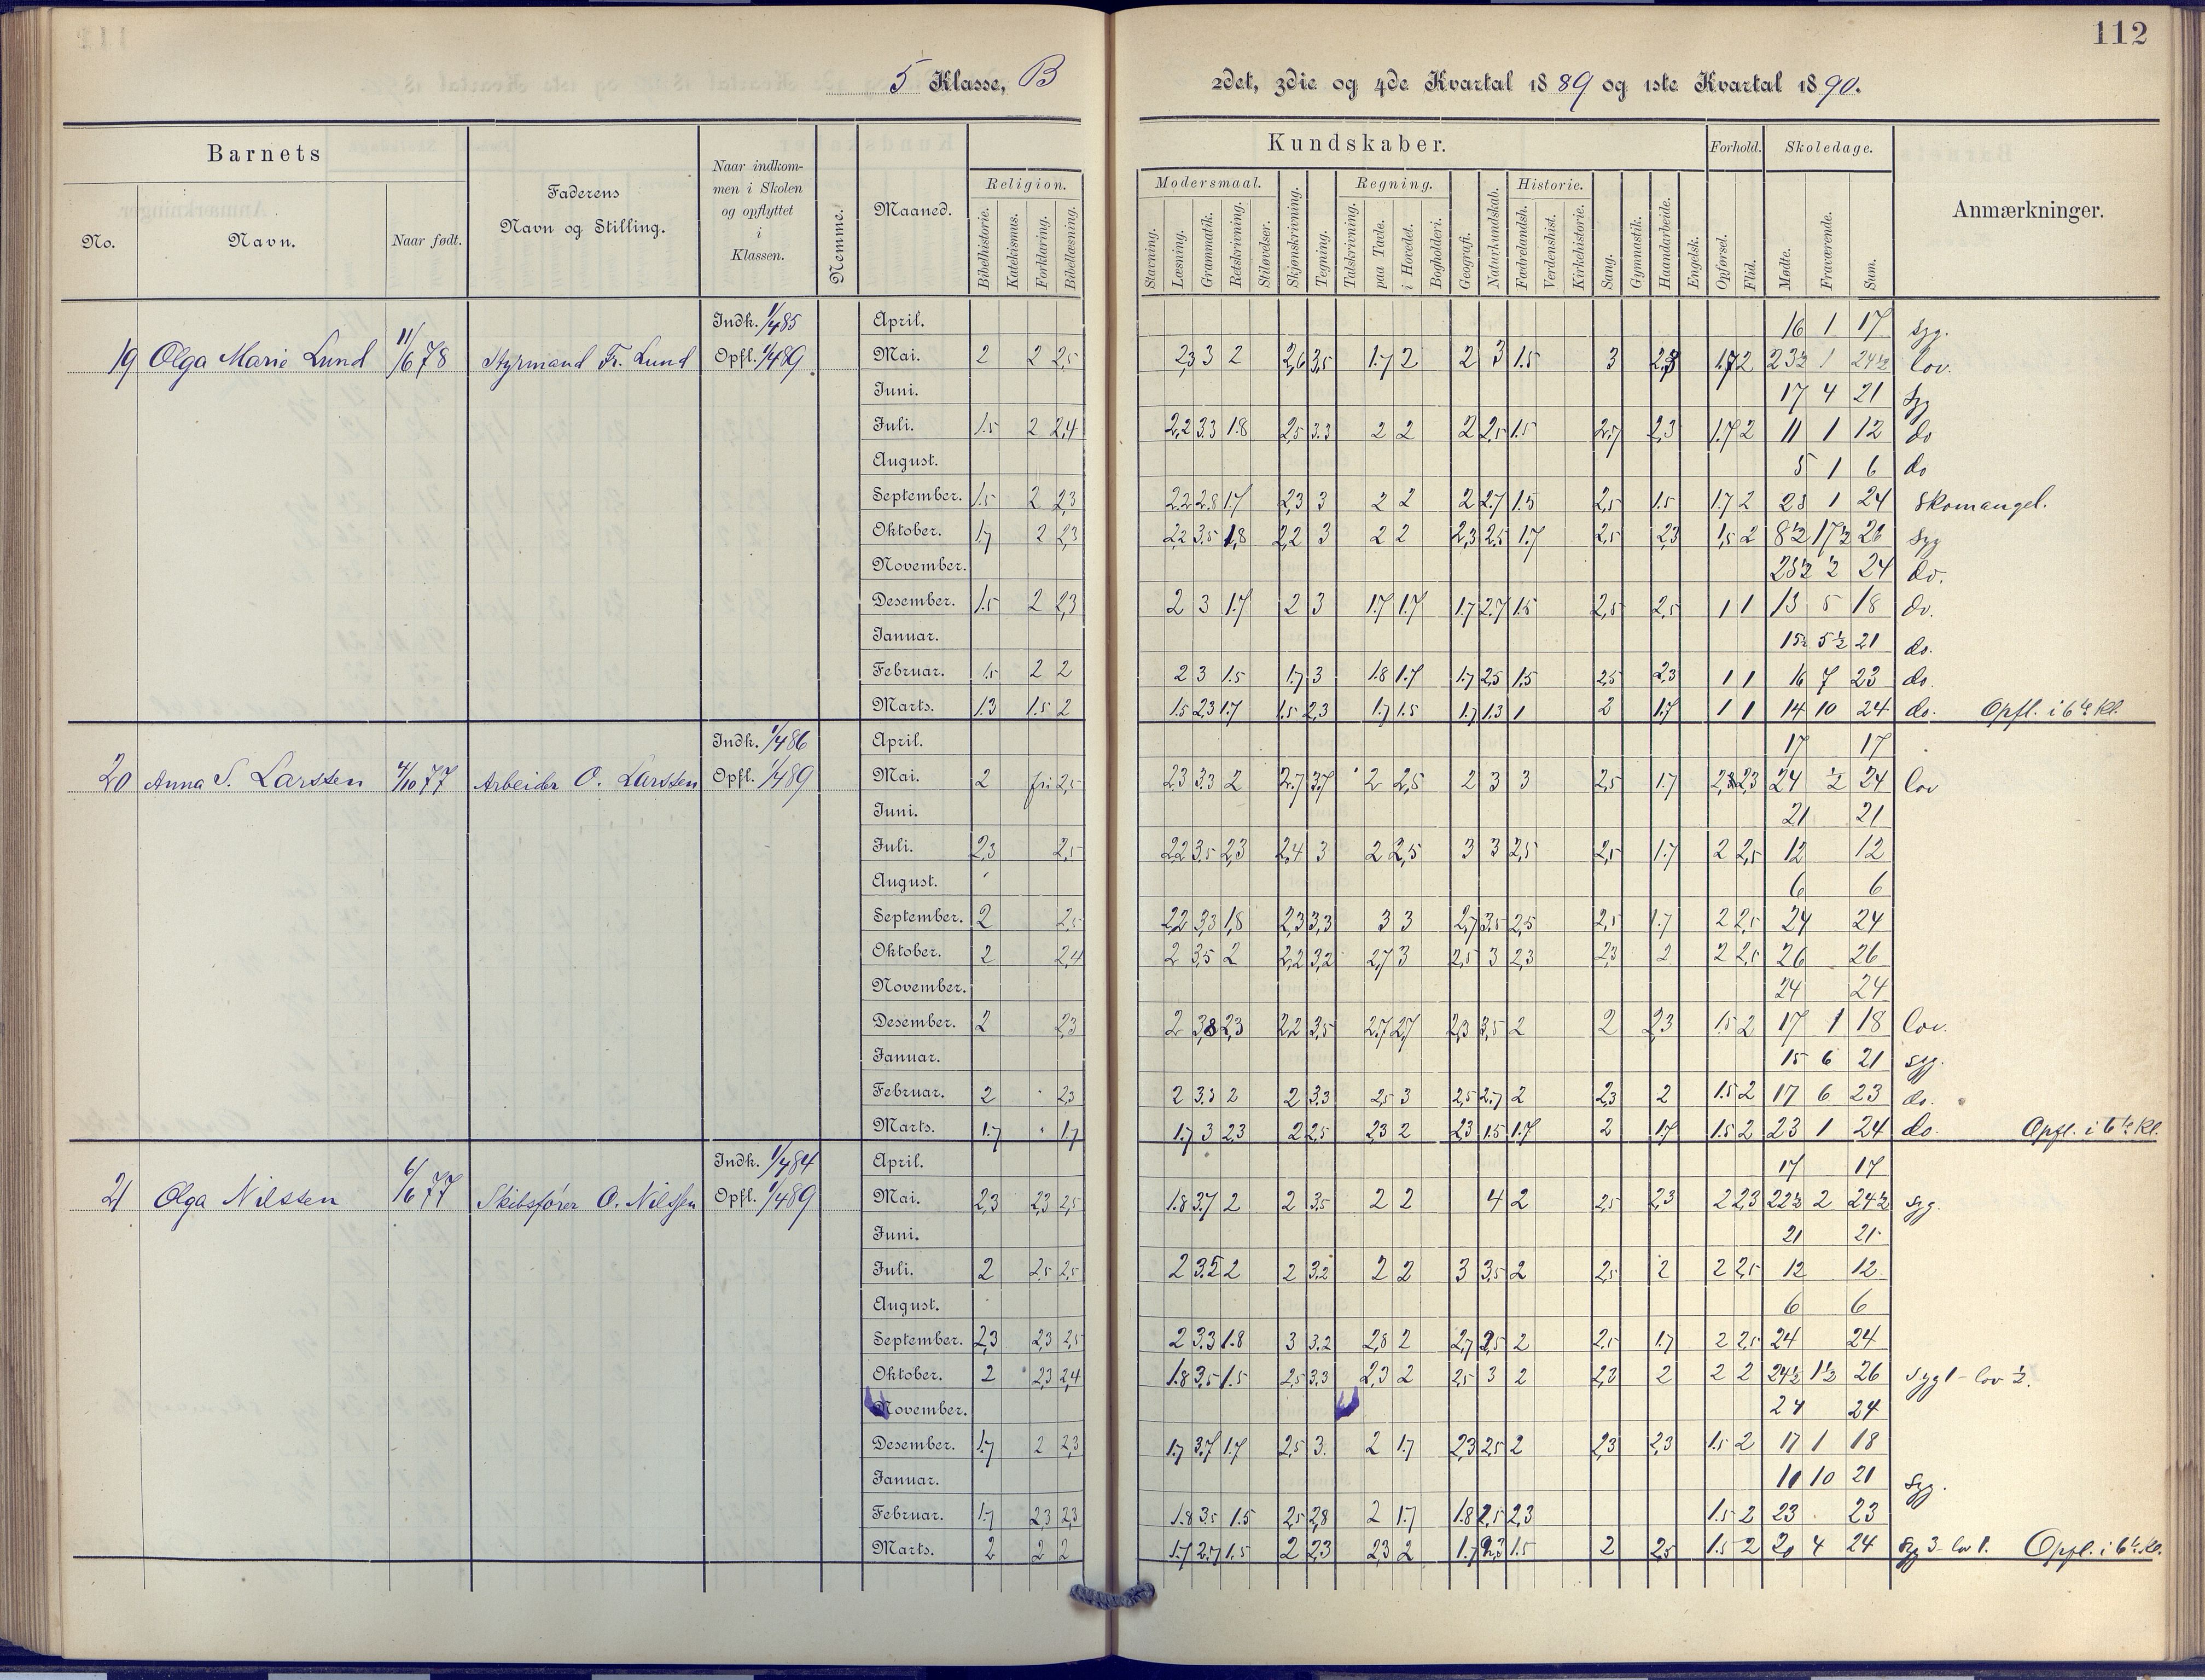 112
5 Klasse, B
2det, 3die og 4de Kvartal 1889 og 1ste Kvartal 1890.
Barnets
No.
Navn.
Naar født.
Faderens
Navn og Stilling.
Naar indkom-
men i Skolen
og opflyttet
i
Klassen.
Nemme.
Maaned.
Religion.
Bibelhistorie.
Katekismus.
Forklaring.
Bibellæsning.
Kundskaber.
Modersmaal.
Stavning.
Læsning.
Grammatik.
Retskrivning.
Stiløvelser.
Skjønskrivning.
Tegning.
Regning.
Talskrivning.
paa Tavle.
i Hovedet.
Bogholderi.
Geografi.
Naturkundskab.
Historie.
Fædrelandsh.
Verdenshist.
Kirkehistorie.
Sang.
Gymnastik.
Haandarbeide.
Engelsk.
Forhold.
Opførsel.
Flid.
Skoledage.
Mødte.
Fraværende.
Sum.
Anmærkninger.
19 Olga Marie Lund 11/6 78 Styrmand Fr. Lund
Indk. 1/4 85
Opfl. 1/4 89
April. 16 1 17 Syg.
Mai. 2 2 2,5 2,3 3 2 2,6 3,5 1.7 2 2 3 1.5 3 2,3 1.7 2 23½ 1 24½ lov.
Juni. 17 4 21 Syg
Juli. 1.5 2 2,4 2,2 3.3 1.8 2,5 3.3 2 2 2 2,5 1.5 2.7 2,3 1.7 2 11 1 12 do
August. 5 1 6 do
September. 1.5 2 2,3 2.2 2.8 1.7 2,3 3 2 2 2 2.7 1.5 2,5 1.5 1.7 2 23 1 24 Skomangel.
Oktober. 1.7 2 2,3 2,2 3.5 1,8 2,2 3 2 2 2,3 2.5 1.7 2,5 2,3 1,5 2 8½ 17½ 26 Syg
November. 23½ ½ 24 do.
Desember. 1.5 2 2,3 2 3 1.7 2 3 1.7 1.7 1.7 2.7 1.5 2,5 2,5 1 1 13 5 18 do.
Januar. 15½ 5½ 21 do.
Februar. 1.5 2 2 2 3 1.5 1.7 3 1.8 1.7 1.7 2,5 1.5 2,5 2,3 1 1 16 7 23 do.
Marts. 1.3 1.5 2 1.5 2,3 1.7 1.5 2,3 1.7 1.5 1.7 1.3 1 2 1.7 1 1 14 10 24 do. Opfl. i 6te Kl.
20 Anna S. Larssen 4/10 77 Arbeider O. Larssen
Indk. 1/4 86
Opfl. 1/4 89
April. 17 17
Mai. 2 fri 2,5 2,3 3.3 2 2.7 3.7 2 2,5 2 3 3 2,5 1.7 2,3 24 ½ 24 lov
Juni. 21 21
Juli. 2,3 2,5 2,2 3,5 2,3 2,4 3 2 2,5 3 3 2,5 2,5 1.7 2 2,5 12 12
August. 6 6
September. 2 2,5 2,2 3,3 1,8 2,3 3,3 3 3 2,7 3,5 2,5 2,5 1.7 2 2,5 24 24
Oktober. 2 2,4 2 3,5 2 2,2 3,2 2,7 3 2,5 3 2,3 2,3 2 2 2,5 26 26
November. 24 24
Desember. 2 2,3 2 3,8 2,3 2,2 3,5 2.7 2,7 2,3 3,5 2 2 2,3 1.5 2 17 1 18 lov.
Januar. 15 6 21 syg.
Februar. 2 2,3 2 3.3 2 2 3.3 2,5 3 2,5 2.7 2 2,3 2 1.5 2 17 6 23 do.
Marts. 1.7 1.7 1.7 3 2,3 2 2,5 2,3 2 2,3 1.5 1.7 2 1.7 1.5 2 23 1 24 do. Opfl. i 6te Kl.
21 Olga Nilssen 6/6 77 Skibsfører O. Nilssen
Indk. 1/4 84
Opfl. 1/4 89
April. 17 17
Mai. 2,3 2,3 2,5 1.8 3.7 2 2 3,5 2 2 4 2 2,5 2,3 2 2,3 22½ 2 24½ syg.
Juni. 21 21
Juli. 2 2,5 2,5 2 3.5 2 2 3.2 2 2 3 3,5 2 2,5 2 2 2,5 12 12
August. 6 6
September. 2,3 2,3 2,5 2 3.3 1.8 3 3.2 2,8 2 2,7 2,5 2 2,5 1.7 2 2,5 24 24
Oktober. 2 2,3 2,4 1.8 3,5 1.5 2,5 3,3 2,3 2 2,5 3 2 2,3 2 2 2 24½ 1½ 26 syg 1 - lov ½.
November. 24 24
Desember. 1.7 2 2,3 1.7 3.7 1.7 2,5 3. 2 1.7 2,3 2,5 2 2,3 2,3 1.5 2 17 1 18
Januar. 11 10 21 Syg.
Februar. 1.7 2,3 2,3 1.8 3,5 1.5 2,5 2,8 2 1.7 1.8 2,5 2,3 1.5 2 23 23
Marts. 2 2 2 1.7 2.7 1.5 2 2,3 2,3 2 1.7 2,3 1.5 2 2,5 1.5 2 20 4 24 Syg 3 - lov 1. Opfl. i 6te Kl.